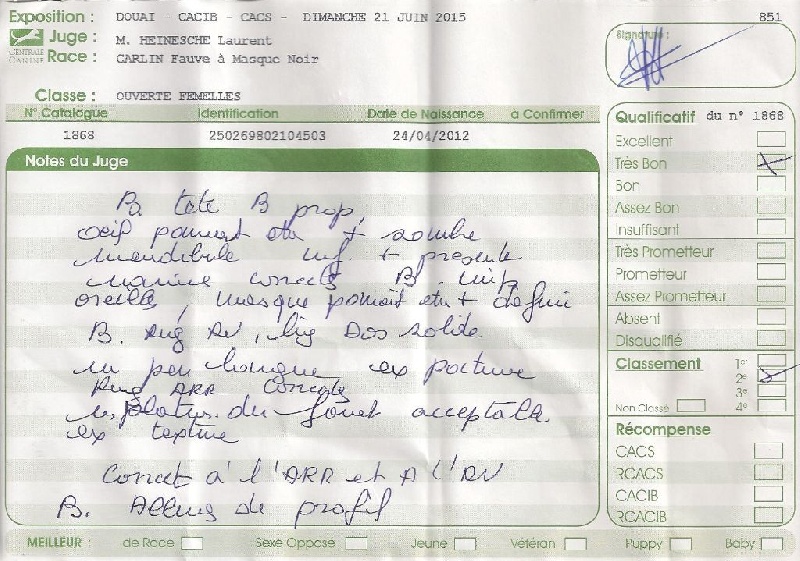 Exposition : DOUAI - CACIB - CACS - DIMANCHE 21 JUIN 2015
851
Juge : M. HEINESCHE Laurent
Signature :
CENTRALE CANINE
Race : CARLIN Fauve à Masque Noir
Classe : OUVERTE FEMELLES
N° Catalogue Identification Date de Naissance à Confirmer
1868 250269802104503 24/04/2012
Notes du Juge
B. tete B prop.
oeil pourrait etre + sombre
mandibule inf. + presente
narine correcte B. imp
oreille, masque pourrait etre + defini
B. Ang AV, lig Dos solide
un peu longue ex posture
Ang ARR Correcte
implat. du fouet acceptable.
ex texture
Correct à l'ARR et A l'AV
B. Allures de profil
Qualificatif du n° 1868
Excellent
Très Bon
Bon
Assez Bon
Insuffisant
Très Prometteur
Prometteur
Assez Prometteur
Absent
Disqualifié
Classement 1e
2e
3e
Non Classé 4e
Récompense
CACS
RCACS
CACIB
RCACIB
MEILLEUR : de Race Sexe Opposé Jeune Vétéran Puppy Baby